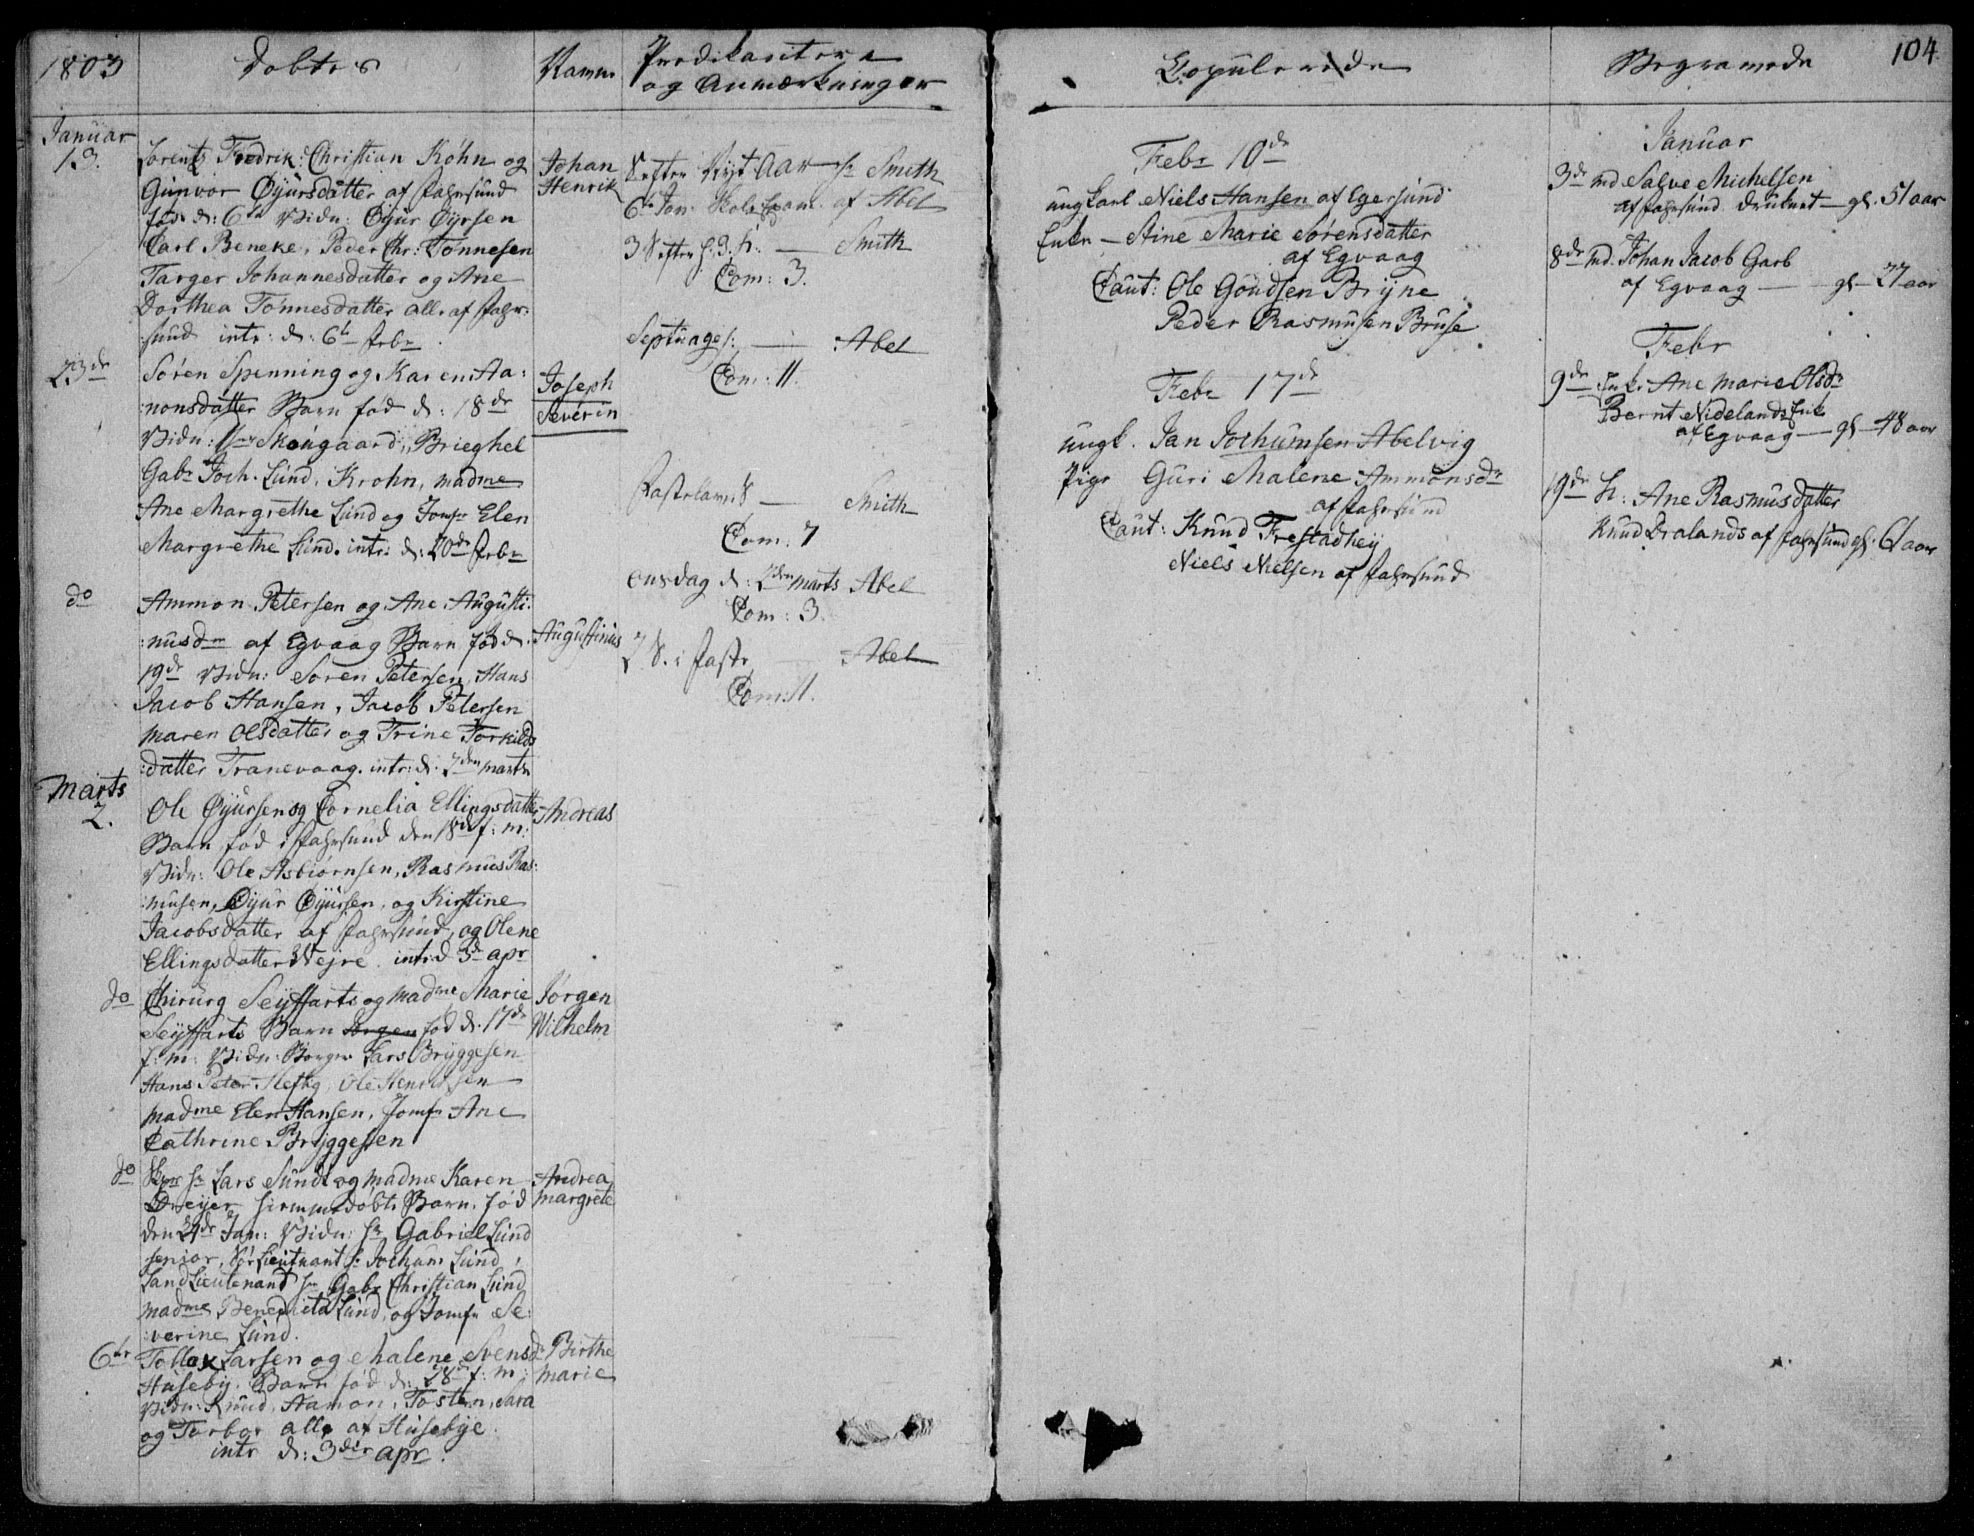 1803
Døbte
Navne
Prædikantere
og Anmærkninger
Januar
13.
Lorentz Fredrik Christian Kohn og
Gunvor Øyursdatter af Fahrsund
fød d: 6te Vidn: Øyur Øyrsen
Carl Beneke, Peder Chr: Tønnesen
Targer Johannesdatter og Ane
Dorthea Tønnesdatter alle af Fahr:
sund intr: d: 6te Febr
Johan
Henrik
23de
Søren Spenning og Karen Aa:
nonsdatter Barn fød d: 18de
Vidn: Skougaard, Brieghel
Gabr Joch. Lund, Krohn, madme
Ane Margrethe Lund og Jomfr Elen
Margrethe Lund. intr: d: 20de Febr
Joseph
Severin
do
Ammon Petersen og Ane Augusti:
nusdr af Egvaag Barn fød d:
19de Vidn: Søren Petersen, Hans
Jacob Hansen, Jacob Petersen
Maren Olsdatter og Trine Torkilds
datter Tranevaag. intr: d. 2den Marts
Augustinius
Marts
2.
Ole Øyursen og Cornelia Ellingsdatter
Barn fød i Fahrsund den 18de f: m:
Vidn: Ole Asbiørnsen, Rasmus Ras:
musen, Øyur Øyursen, og Kirstine
Jacobsdatter af Fahrsund, og Olene
Ellingsdatter Vejre. intr d 3de apr
Andreas
do
Chirurg Seyffarts og madme Marie
Seyffarts Barn Jørgen fød d. 17de
f: m: Vidn: Borger Lars Bryggesen
Hans Peter
madme Elen Hansen, Jomfr Ane
Cathrine Bryggesen
Jørgen
Wilhelm
do
hr Lars Sund og madme Karen
Dreyer hiemmedøbte Barn, fød
den 29de Jan: Vidn: hr Gabriel Lund
senior, Lieutnant hr Jochum Lund,
Land Lieutenand hr Gabr Christian Lund
madme Benedicta Lund, og Jomfr Se:
verine Lund.
Andrea
Margrete
6te
Tollak Larsen og Malene Svensdr
Huseby. Barn fød d: 28 f: m:
Vidn: Knud, Aamon, Tosten, Sara
og Torbor alle af Husebye.
intr d: 3die apr.
Birthe
Marie
S efter Nyt Aar hr Smith
6te Jan. Skole Exam. af Abel
3 S efter h. 3. k. Smith
Com: 3.
Septuages: Abel
Com: 11.
Fastelavns S Smith
Com: 7
Onsdag d: 2den Marts Abel
Com: 3.
2 S. i Faste Abel
Com: 11.
Copulerede
Febr 10de
ungkarl Niels Hansen af Egersund
Enke Stine Marie Sørensdatter
af Egvaag
Caut: Ole Goudsen Bryne
Peder Rasmusen Bruse
Febr 17de
ungk. Jan Jochumsen Abelvig
Pige Guri Malene Ammonsdr
af Fahrsund
Caut: Knud Frestadhey
Niels Nielsen af Fahrsund
Begravede
104
Januar
3de md Salve Michelsen
af Fahrsund druknet gl. 51 aar
8de md. Johan Jacob Garb
af Egvaag gl 27 aar
Febr
9de Enke Ane Marie Olsdr
Bernt Nidelands Enke
af Egvaag gl 48 aar
19de k: Ane Rasmusdatter
Knud Dralands af Fahrsund gl. 61 aar